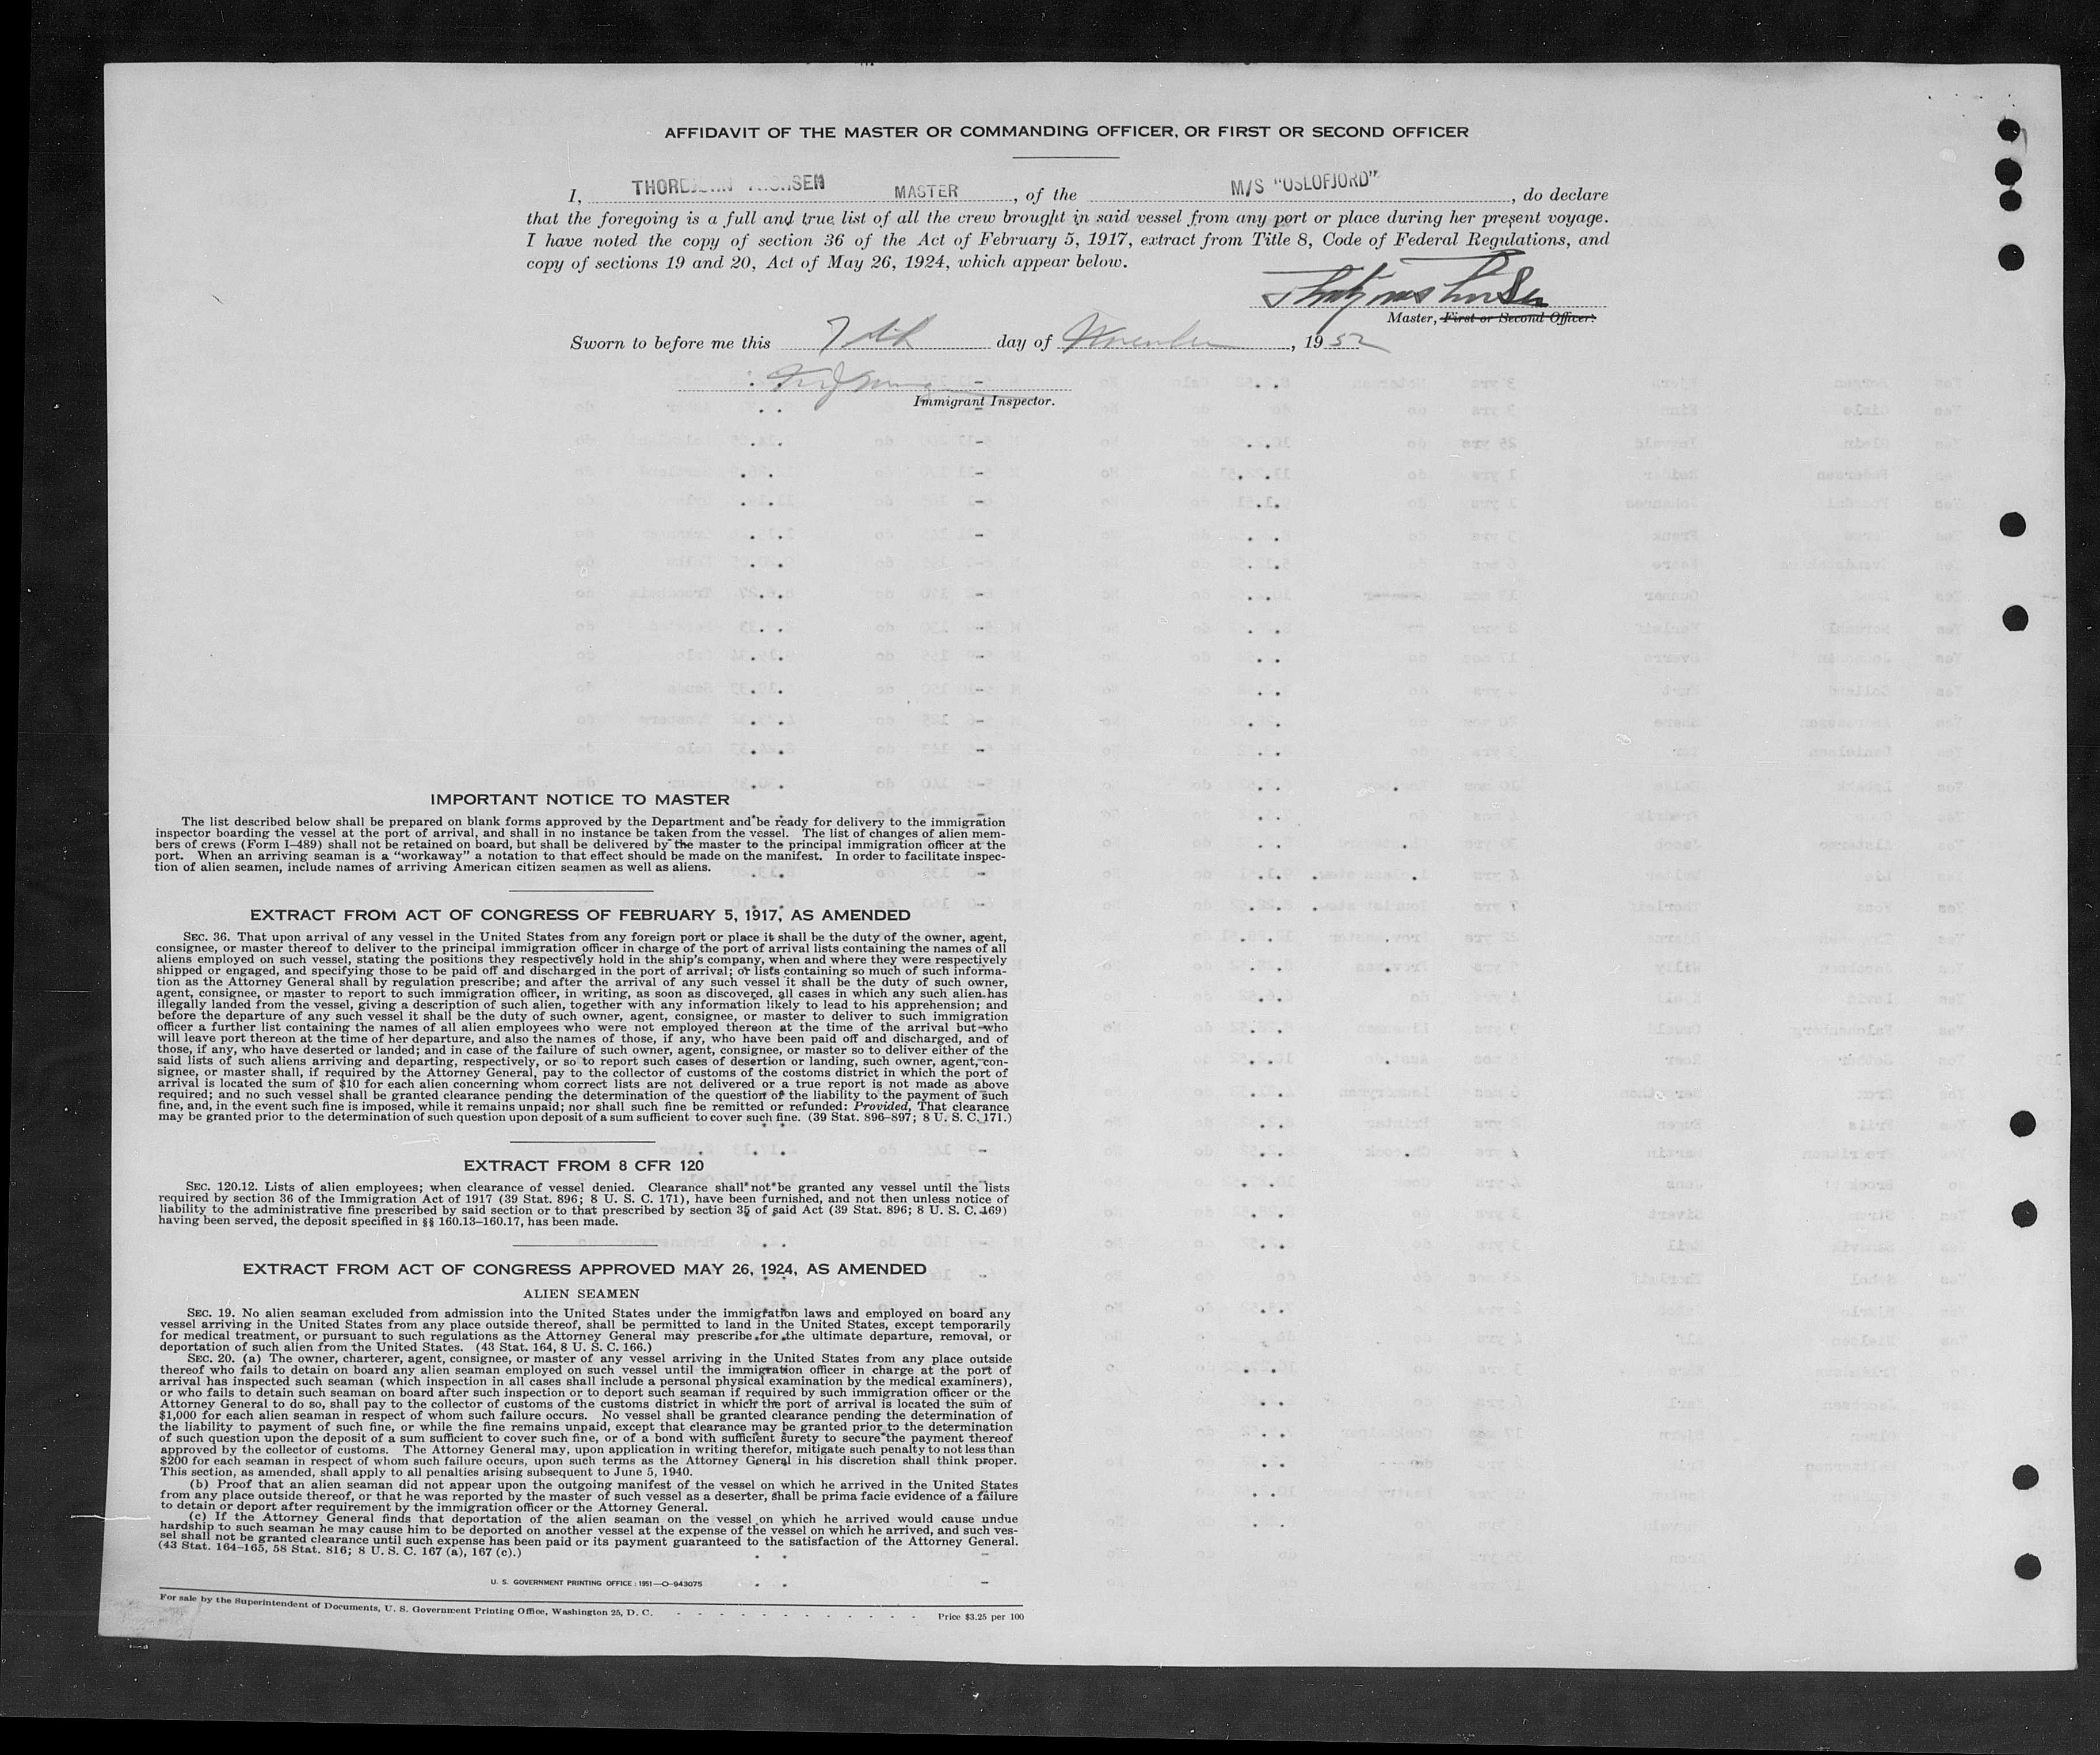 AFFIDAVIT OF THE MASTER OR COMMANDING OFFICER, OR FIRST OR SECOND OFFICER
I, MASTER, of the M/S "OSLOFJORD", do declare
that the foregoing is a full and true list of all the crew brought in said vessel from any port or place during her present voyage.
I have noted the copy of section 36 of the Act of February 5, 1917, extract from Title 8, Code of Federal Regulations, and
copy of sections 19 and 20, Act of May 26, 1924, which appear below.
Master, First or Second Officer.
Sworn to before me this 7th day of November, 1952
Immigrant Inspector.
IMPORTANT NOTICE TO MASTER
The list described below shall be prepared on blank forms approved by the Department and be ready for delivery to the immigration
inspector boarding the vessel at the port of arrival, and shall in no instance be taken from the vessel. The list of changes of alien mem-
bers of crews (Form I-489) shall not be retained on board, but shall be delivered by the master to the principal immigration officer at the
port. When an arriving seaman is a "workaway" a notation to that effect should be made on the manifest. In order to facilitate inspec-
tion of alien seamen, include names of arriving American citizen seamen as well as aliens.
EXTRACT FROM ACT OF CONGRESS OF FEBRUARY 5, 1917, AS AMENDED
SEC. 36. That upon arrival of any vessel in the United States from any foreign port or place it shall be the duty of the owner, agent,
consignee, or master thereof to deliver to the principal immigration officer in charge of the port of arrival lists containing the names of all
aliens employed on such vessel, stating the positions they respectively hold in the ship's company, when and where they were respectively
shipped or engaged, and specifying those to be paid off and discharged in the port of arrival; or lists containing so much of such informa-
tion as the Attorney General shall by regulation prescribe; and after the arrival of any such vessel it shall be the duty of such owner,
agent, consignee, or master to report to such immigration officer, in writing, as soon as discovered, all cases in which any such alien has
illegally landed from the vessel, giving a description of such alien, together with any information likely to lead to his apprehension; and
before the departure of any such vessel it shall be the duty of such owner, agent, consignee, or master to deliver to such immigration
officer a further list containing the names of all alien employees who were not employed thereon at the time of the arrival but who
will leave port thereon at the time of her departure, and also the names of those, if any, who have been paid off and discharged, and of
those, if any, who have deserted or landed; and in case of the failure of such owner, agent, consignee, or master so to deliver either of the
said lists of such aliens arriving and departing, respectively, or so to report such cases of desertion or landing, such owner, agent, con-
signee, or master shall, if required by the Attorney General, pay to the collector of customs of the costoms district in which the port of
arrival is located the sum of $10 for each alien concerning whom correct lists are not delivered or a true report is not made as above
required; and no such vessel shall be granted clearance pending the determination of the question of the liability to the payment of such
fine, and, in the event such fine is imposed, while it remains unpaid; nor shall such fine be remitted or refunded: Provided, That clearance
may be granted prior to the determination of such question upon deposit of a sum sufficient to cover such fine. (39 Stat. 896-897; 8 U. S. C. 171.)
EXTRACT FROM 8 CFR 120
SEC. 120.12. Lists of alien employees; when clearance of vessel denied. Clearance shall not be granted any vessel until the lists
required by section 36 of the Immigration Act of 1917 (39 Stat. 896; 8 U. S. C. 171), have been furnished, and not then unless notice of
liability to the administrative fine prescribed by said section or to that prescribed by section 35 of said Act (39 Stat. 896; 8 U. S. C. 169)
having been served, the deposit specified in §§ 160.13-160.17, has been made.
EXTRACT FROM ACT OF CONGRESS APPROVED MAY 26, 1924, AS AMENDED
ALIEN SEAMEN
SEC. 19. No alien seaman excluded from admission into the United States under the immigration laws and employed on board any
vessel arriving in the United States from any place outside thereof, shall be permitted to land in the United States, except temporarily
for medical treatment, or pursuant to such regulations as the Attorney General may prescribe for the ultimate departure, removal, or
deportation of such alien from the United States. (43 Stat. 164, 8 U. S. C. 166.)
SEC. 20. (a) The owner, charterer, agent, consignee, or master of any vessel arriving in the United States from any place outside
thereof who fails to detain on board any alien seaman employed on such vessel until the immigration officer in charge at the port of
arrival has inspected such seaman (which inspection in all cases shall include a personal physical examination by the medical examiners),
or who fails to detain such seaman on board after such inspection or to deport such seaman if required by such immigration officer or the
Attorney General to do so, shall pay to the collector of customs of the customs district in which the port of arrival is located the sum of
$1,000 for each alien seaman in respect of whom such failure occurs. No vessel shall be granted clearance pending the determination of
the liability to payment of such fine, or while the fine remains unpaid, except that clearance may be granted prior to the determination
of such question upon the deposit of a sum sufficient to cover such fine, or of a bond with sufficient surety to secure the payment thereof
approved by the collector of customs. The Attorney General may, upon application in writing therefor, mitigate such penalty to not less than
$200 for each seaman in respect of whom such failure occurs, upon such terms as the Attorney General in his discretion shall think proper.
This section, as amended, shall apply to all penalties arising subsequent to June 5, 1940.
(b) Proof that an alien seaman did not appear upon the outgoing manifest of the vessel on which he arrived in the United States
from any place outside thereof, or that he was reported by the master of such vessel as a deserter, shall be prima facie evidence of a failure
to detain or deport after requirement by the immigration officer or the Attorney General.
(c) If the Attorney General finds that deportation of the alien seaman on the vessel on which he arrived would cause undue
hardship to such seaman he may cause him to be deported on another vessel at the expense of the vessel on which he arrived, and such ves-
sel shall not be granted clearance until such expense has been paid or its payment guaranteed to the satisfaction of the Attorney General.
(43 Stat. 164-165, 58 Stat. 816; 8 U. S. C. 167 (a), 167 (c).)
U. S. GOVERNMENT PRINTING OFFICE : 1951—O-943075
For sale by the Superintendent of Documents, U. S. Government Printing Office, Washington 25, D. C. - - - - - - - - - - Price $3.25 per 100